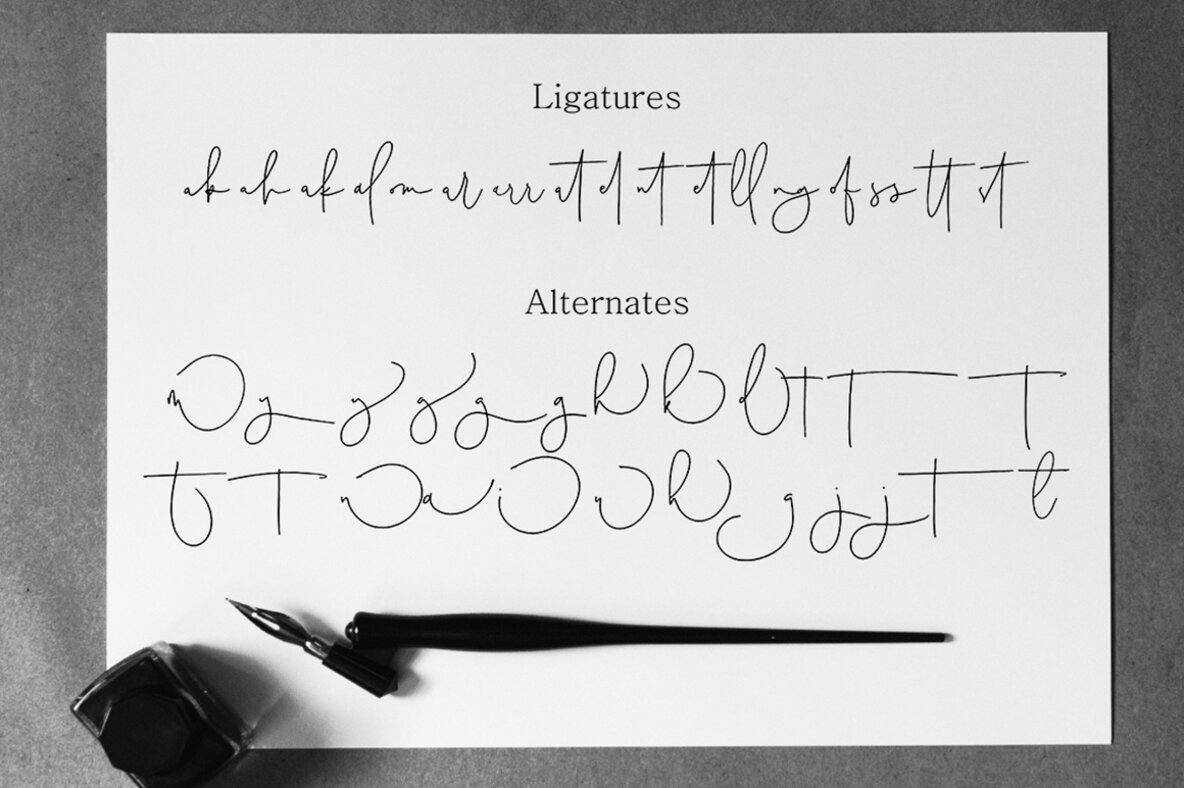 Ligatures
ab ah ak al om ar arr at el nt et ll ng of ss tt st
Alternates
m y y g g g h k d t t t
t t n a i h g j j t t